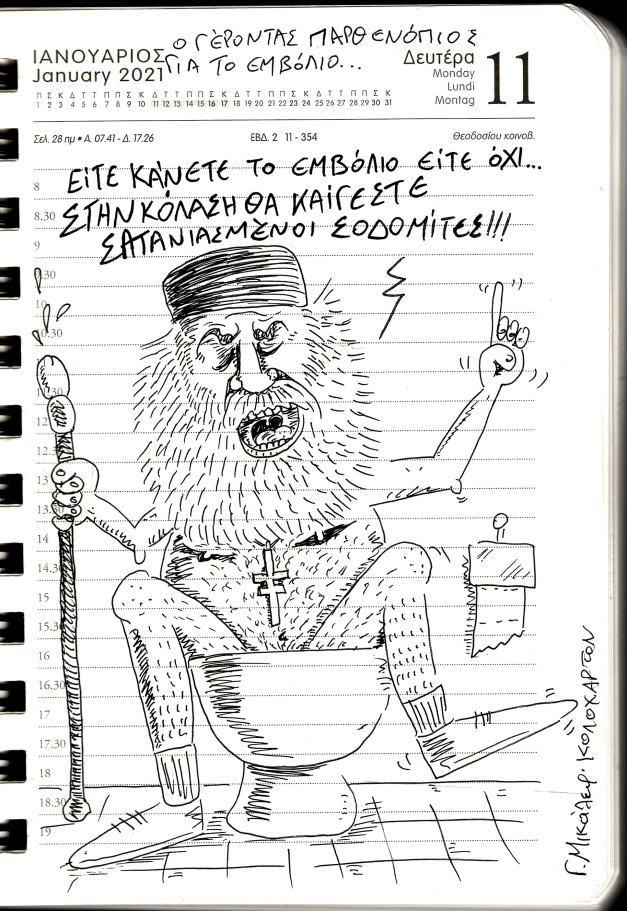 Ο ΓΕΡΟΝΤΑΣ ΠΑΡΘΕΝΌΠΙΟΣ
ΓΙΑ ΤΟ ΕΜΒΌΛΙΟ...
ΙΑΝΟΥΑΡΙΟΣ
January 2021
Π Σ Κ Δ Τ Τ Π Π Σ Κ Δ Τ Τ Π Π Σ Κ Δ Τ Τ Π Π Σ Κ Δ Τ Τ Π Π Σ Κ
1 2 3 4 5 6 7 8 9 10 11 12 13 14 15 16 17 18 19 20 21 22 23 24 25 26 27 28 29 30 31
Δευτέρα
Monday
Lundi
Montag
11
Σελ. 28 ημ • Α. 07.41 - Δ. 17.26
ΕΒΔ. 2 11 - 354
Θεοδοσίου κοινοβ.
ΕΊΤΕ ΚΆΝΕΤΕ ΤΟ ΕΜΒΌΛΙΟ ΕΊΤΕ ΌΧΙ...
ΣΤΗΝ ΚΌΛΑΣΗ ΘΑ ΚΑΊΓΕΣΤΕ
ΣΑΤΑΝΙΑΣΜΈΝΟΙ ΣΟΔΟΜΊΤΕΣ!!!
8
8.30
9
9.30
10
10.30
11.30
12
12.30
13
13.30
14
14.30
15
15.30
16
16.30
17
17.30
18
18.30
19
Γ. Μικάλεφ. ΚΩΛΟΧΑΡΤΟΝ